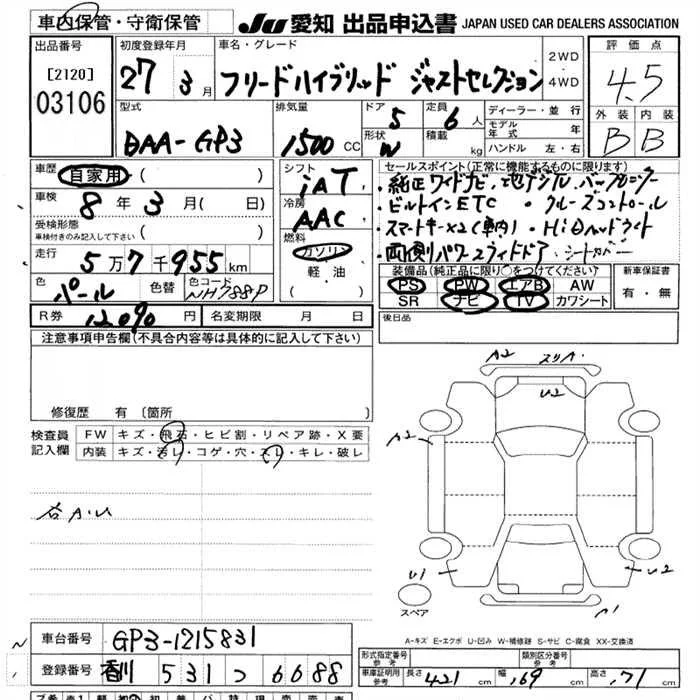 車内保管・守衛保管 JU 愛知 出品申込書 JAPAN USED CAR DEALERS ASSOCIATION
出品番号 初度登録年月 車名・グレード 評価点
[2120] 27年3月 フリードハイブリッド ジャストセレクション 2WD 4WD 4.5
03106
型式 排気量 ドア 5 定員 6人 ディーラー・並行 外装 内装
DAA-GP3 1500 CC 形状 W 積載 kg モデル年式 年 B B
ハンドル 左・右
車歴 自家用 ( ) シフト セールスポイント(正常に機能するものに限ります)
車検 8年3月(日) iAT ・純正ワイドナビ、地デジTV、バックモニター
受検形態 冷房 ・ビルトインETC ・クルーズコントロール
車検付きのみ記入して下さい ( ) AAC ・スマートキー×2(車内) ・HiDヘッドライト
走行 5万7千955km 燃料 ガソリン ・両側パワースライドドア シートカバー
色 パール 色替 色コード NH788P 軽油 ( )
装備品(純正品に限り○をつけてください) 新車保証書
PS PW エアB AW 有・無
SR ナビ TV カワシート
R券 12090円 名変期限 月 日 後日品
注意事項申告欄(不具合内容等は具体的に記入して下さい)
修復歴 有 [箇所
検査員記入欄 FW キズ・飛石・ヒビ割・リペア跡・X要
内装 キズ・汚レ・コゲ・穴・スレ・キレ・破レ
A2 スリA
U2
A2
U1 U2
スペア
A-キズ E-エクボ U-凹み W-補修跡 S-サビ C-腐食 XX-交換済
車台番号 GP3-1215831
登録番号 香川 531 つ 6688
形式指定番号 参考 類別区分番号 参考
車庫証明用 参考 長さ 421 cm 幅 169 cm 高さ 171 cm